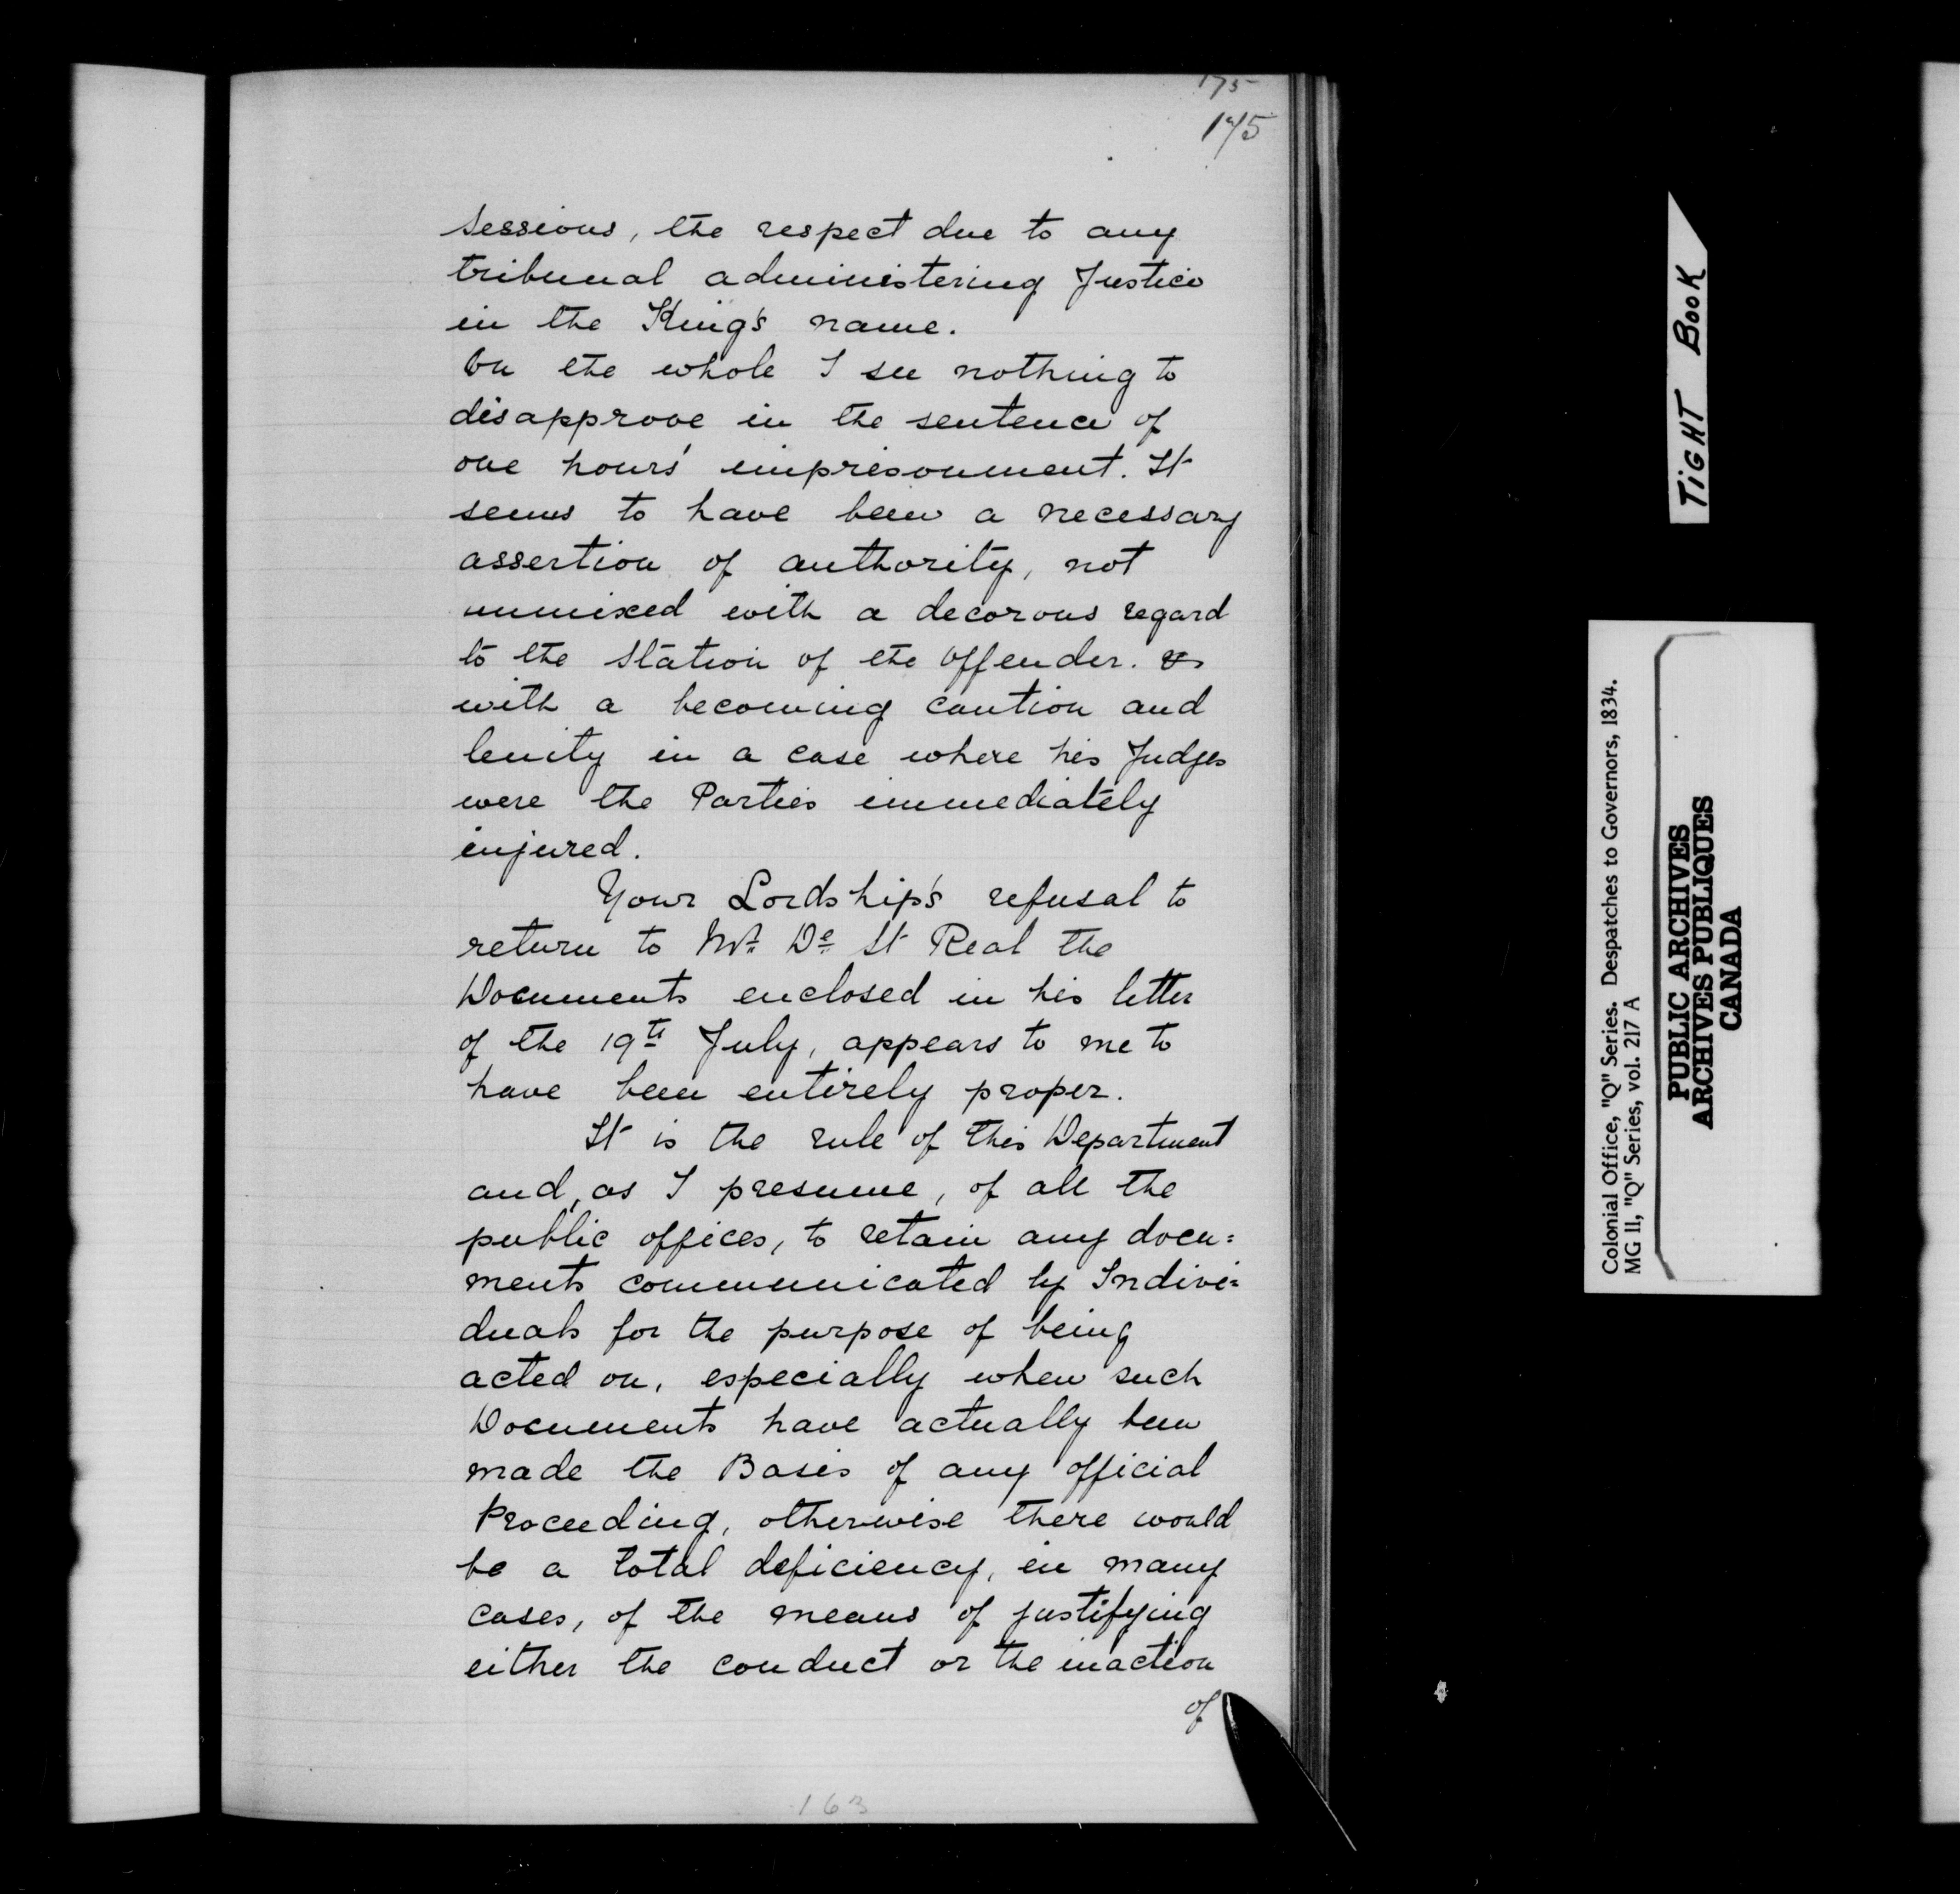 175
175
sessions, the respect due to any
tribunal administering Justice
in the King's name.
On the whole I see nothing to
disapprove in the sentence of
one hours' imprisonment. It
seems to have been a necessary
assertion of authority, not
unmixed with a decorous regard
to the station of the offender. &
with a becoming caution and
lenity in a case where his Judges
were the Parties immediately
injured.
Your Lordship's refusal to
return to Mr. De St Real the
Documents enclosed in his letter
of the 19th July, appears to me to
have been entirely proper.
It is the rule of this Department
and, as I presume, of all the
public offices, to retain any docu=
ments communicated by Indivi=
duals for the purpose of being
acted on, especially when such
Documents have actually been
made the Basis of any official
Proceeding, otherwise there would
be a total deficiency, in many
cases, of the means of justifying
either the conduct or the inaction
of
163
TIGHT BOOK
Colonial Office, "Q" Series. Despatches to Governors, 1834.
MG 11, "Q" Series, vol. 217 A
PUBLIC ARCHIVES
ARCHIVES PUBLIQUES
CANADA